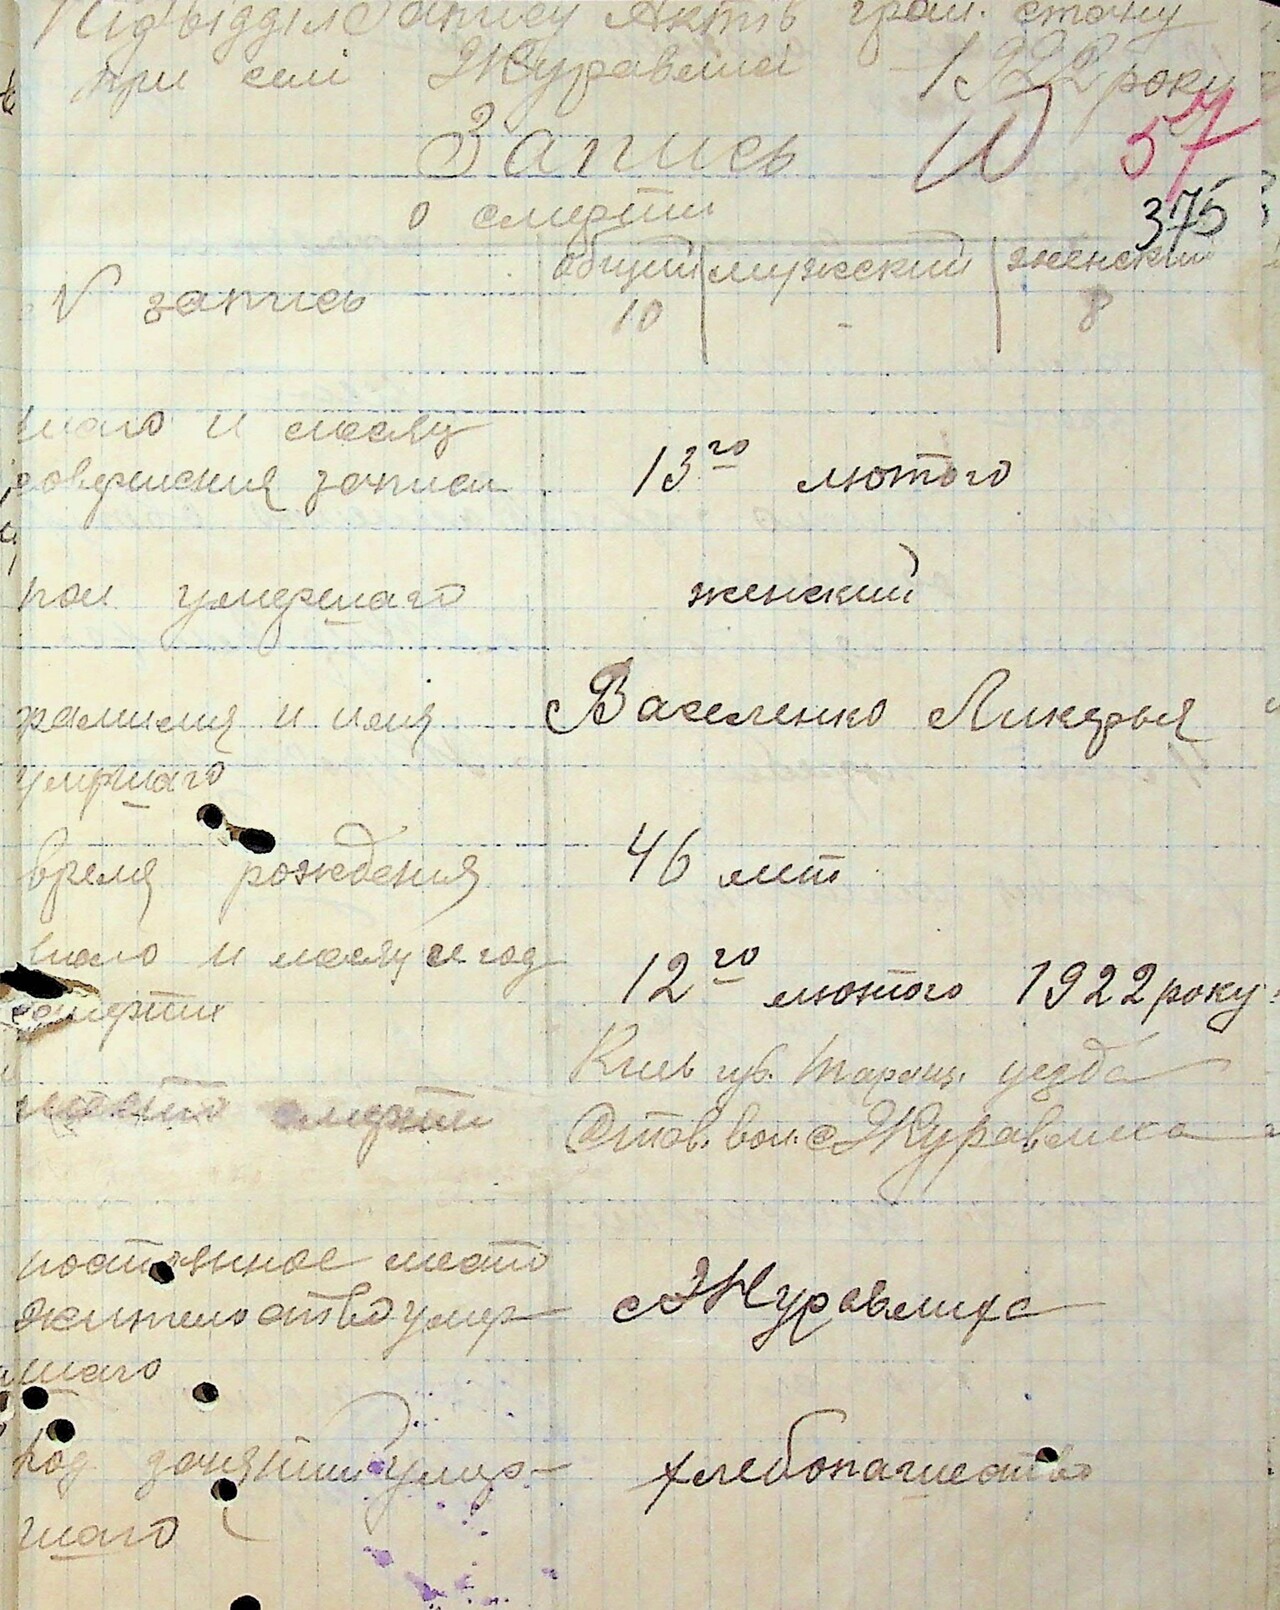 Підвідділ Запису Актів грам. стану
при селі Журавлисі 1922 року
Запись 57
о смерти 375
общий мужской женский
№ запись 10 - 8
число и месяц
совершения записи 13го лютого
пол умершаго женский
фамилия и имя Василенко Ликерья
умершаго
время рождения 46 лет
число и месяц и год
смерти 12го лютого 1922 року
Киев губ. Таращ. уезда
место смерти Став. вол. с Журавлиха
постоянное место
жительство умер- с Журавлиха
шаго
Род занятии умер- хлебопашество
шаго